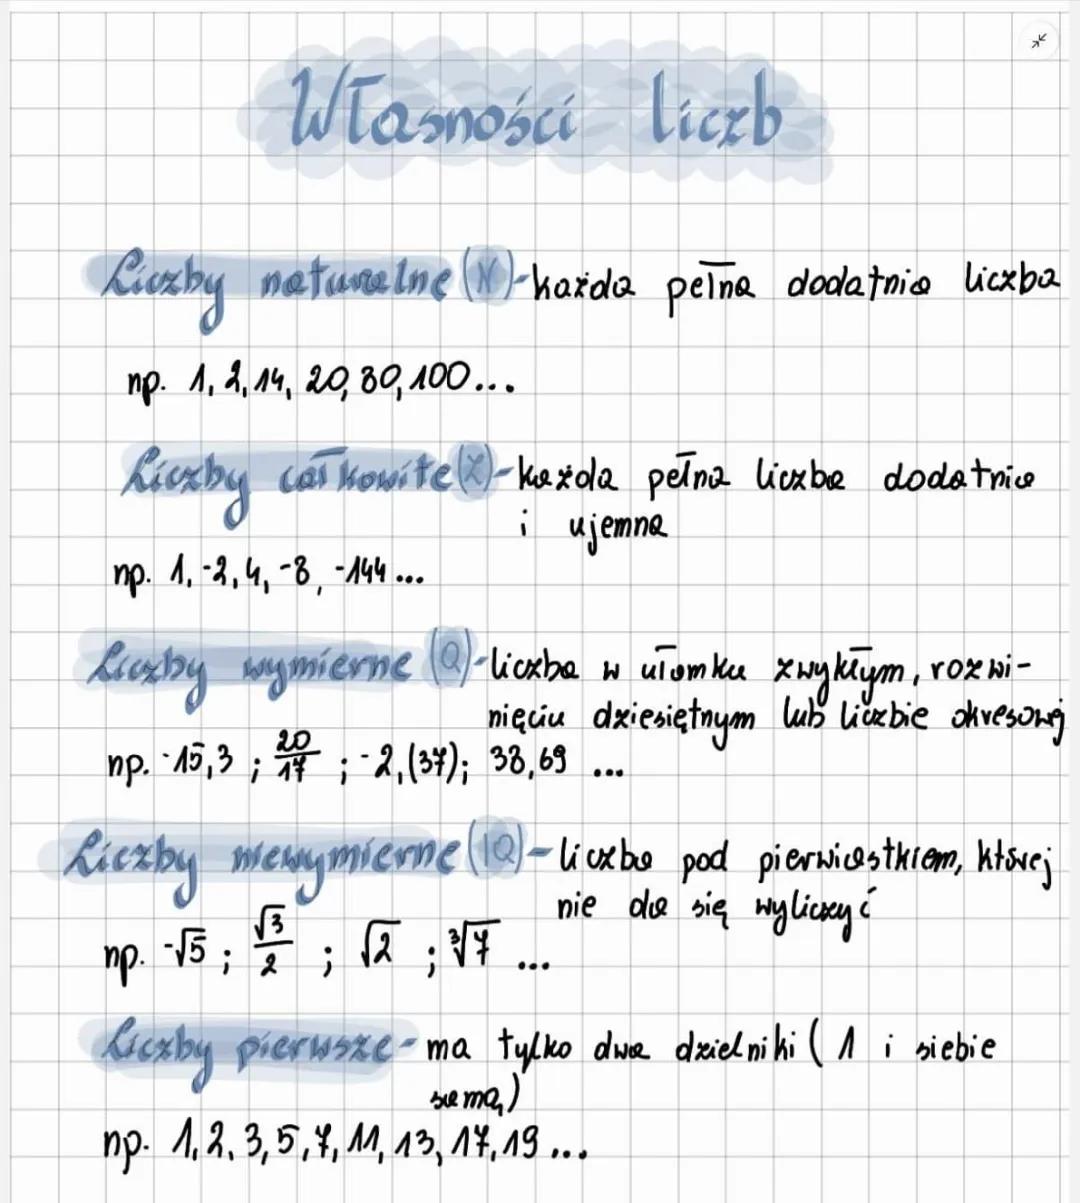 Własności liczb
Liczby naturalne (N)-każda pełna dodatnia liczba
np. 1, 2, 14, 20, 80, 100...
Liczby całkowite (Z)-każda pełna liczba dodatnia
i ujemna
np. 1, -2, 4, -8, -144...
Liczby wymierne (Q)-liczba w ułamku zwykłym, rozwi-
nięciu dziesiętnym lub liczbie okresowej
np. -15,3 ; 20/17 ; -2,(37); 38,69 ...
Liczby niewymierne (IQ)-liczba pod pierwiastkiem, której
nie da się wyliczyć
np. -√5 ; √3/2 ; √2 ; ∛7 ...
Liczby pierwsze- ma tylko dwa dzielniki ( 1 i siebie
samą)
np. 1, 2, 3, 5, 7, 11, 13, 17, 19 ...